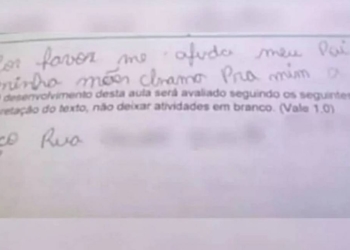 or favor me ajuda meu Pai
minha mães chamo Pra mim a
desenvolvimento desta aula será avaliado seguindo os seguinte
retação do texto, não deixar atividades em branco. (Vale 1,0)
ço Rua